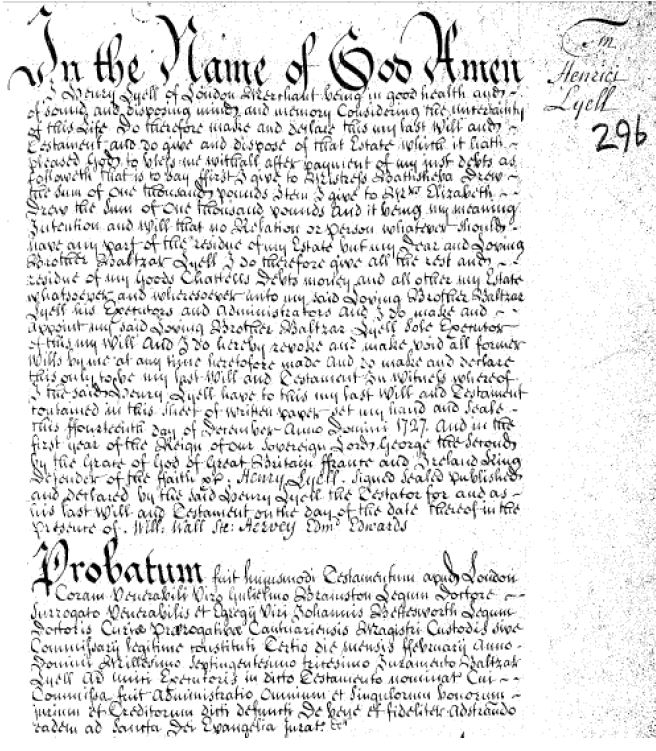 In the Name of God Amen
I Henry Lyell of London Merchant being in good health and
of sound and disposing mind and memory Considering the uncertainty
of this Life Do therefore make and declare this my last Will and
Testament and do give and dispose of that Estate which it hath
pleased God to bless me withall after payment of my just debts as
followeth that is to say ffirst I give to Mistress Bathsheba Drew
the sum of One thousand pounds Item I give to Mrs Elizabeth
Drew the Sum of One thousand pounds And it being my meaning
Intention and Will that no Relation or person whatever should
have any part of the residue of my Estate but my Dear and Loving
Brother Baltzar Lyell I do therefore give all the rest and
residue of my Goods Chattells Debts money and all other my Estate
whatsoever and wheresoever unto my said Loving Brother Baltzar
Lyell his Executors and Administrators And I do make and
appoint my said Loving Brother Baltzar Lyell Sole Executor
of this my Will And I do hereby revoke and make void all former
Wills by me at any time heretofore made And do make and declare
this only to be my last Will and Testament In Witness whereof
I the said Henry Lyell have to this my last Will and Testament
contained in this sheet of written paper set my hand and Seale
this ffourteenth day of December Anno Domini 1727. And in the
first year of the Reign of our Sovereign Lord George the Second
by the Grace of God of Great Britain ffrance and Ireland King
Defender of the ffaith &c: Henry Lyell. Signed Sealed published
and declared by the said Henry Lyell the Testator for and as
his last Will and Testament on the day of the date thereof in the
presence of. Will: Wall Ste: Hervey Edmd Edwards
Probatum fuit hujusmodi Testamentum apud London
Coram Venerabili Viro Gulielmo Bramston Legum Doctore
Surrogato Venerabilis et Egregij Viri Johannis Bettesworth Legum
Doctoris Curiæ Prærogativæ Cantuariensis Magistri Custodis sive
Commissarij legitime constituti Tertio die mensis ffebruarij Anno
Domini Millesimo Septingentesimo tricesimo Juramento Baltzar
Lyell Ad uniti Executoris in dicto Testamento nominat Cui
Commissa fuit Administratio Omnium et Singulorum bonorum
jurium et Creditorum dicti defuncti De bene et fideliter Adstrando
eadem ad Sancta Dei Evangelia Jurat: Ex
Tm
Henrici
Lyell
296